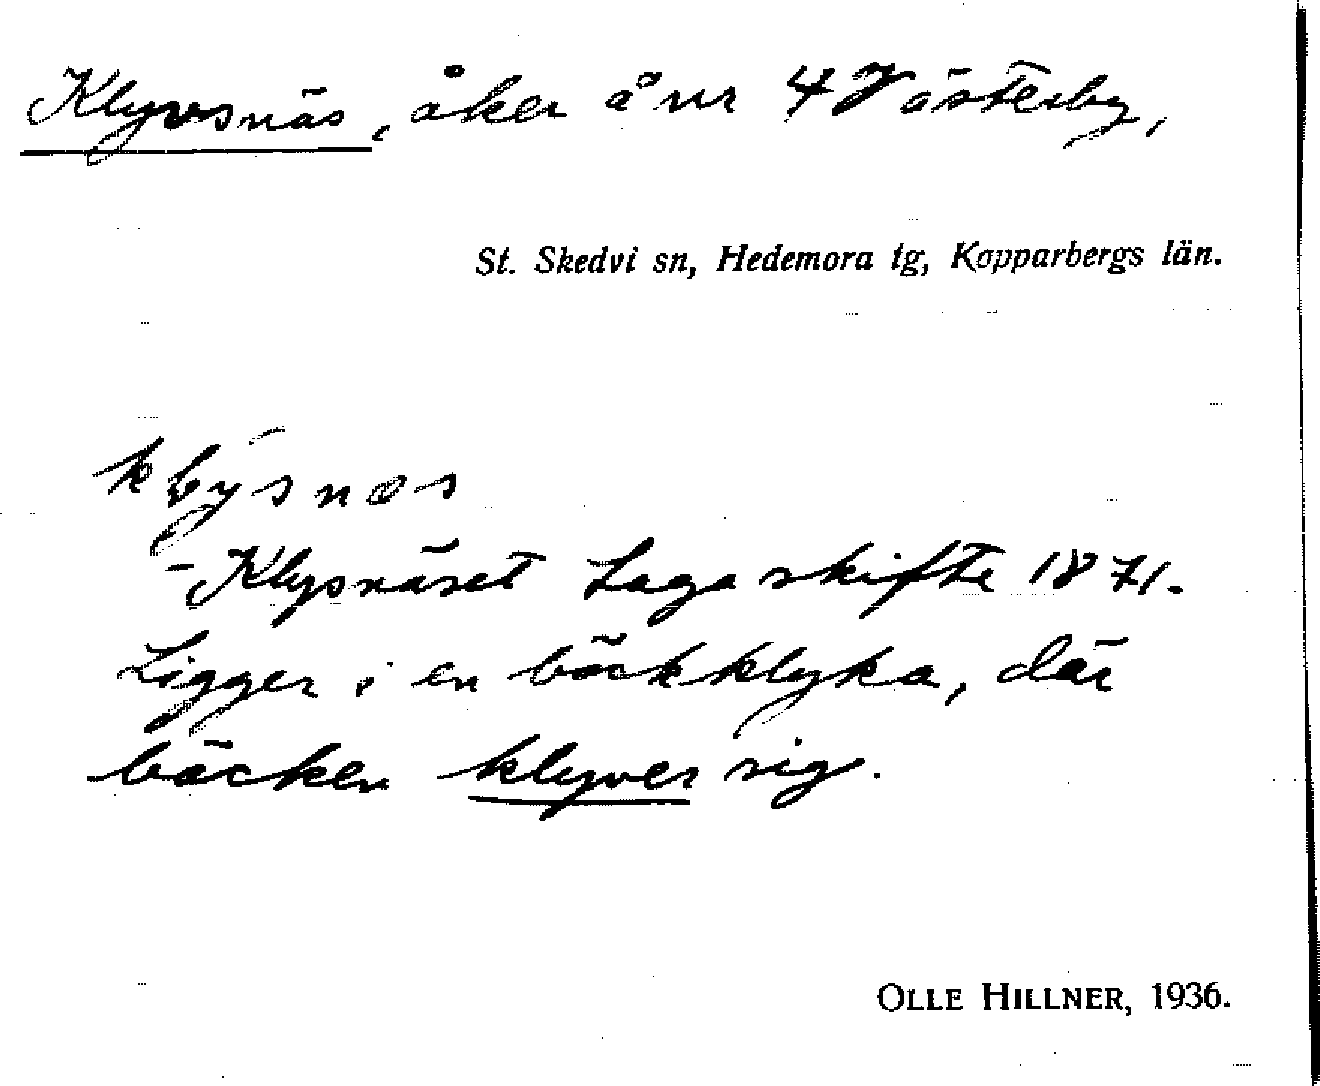 Klyvsnäs, åker å nr 4 Västerby,
St. Skedvi sn, Hedemora tg, Kopparbergs län.
-Klysnäset Laga skifte 1871.
Ligger i en bäckklyka, där
bäcken klyver sig.
OLLE HILLNER, 1936.